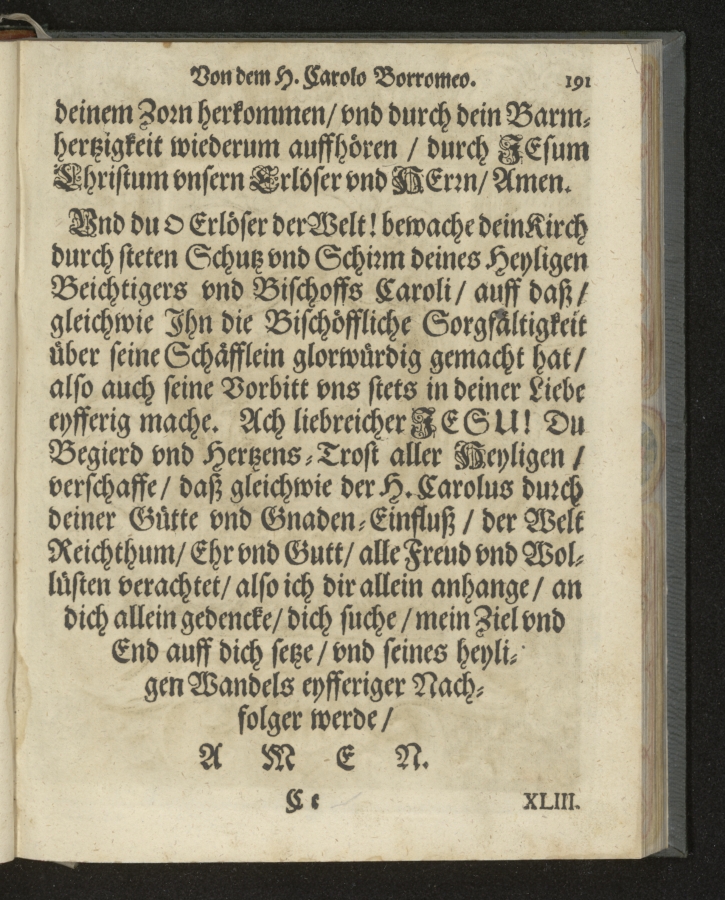 Von dem H. Carolo Borromeo. 191
deinem Zorn herkommen/ vnd durch dein Barm-
hertzigkeit wiederum auffhören / durch JEsum
Christum vnsern Erlöser vnd HErrn/ Amen.
Vnd du O Erlöser der Welt! bewache dein Kirch
durch steten Schutz vnd Schirm deines Heyligen
Beichtigers vnd Bischoffs Caroli/ auff daß/
gleichwie Ihn die Bischöffliche Sorgfältigkeit
über seine Schäfflein glorwürdig gemacht hat/
also auch seine Vorbitt vns stets in deiner Liebe
eyfferig mache. Ach liebreicher JESU! Du
Begierd vnd Hertzens-Trost aller Heyligen /
verschaffe/ daß gleichwie der H. Carolus durch
deiner Gütte vnd Gnaden-Einfluß / der Welt
Reichthum/ Ehr vnd Gutt/ alle Freud vnd Wol-
lüsten verachtet/ also ich dir allein anhange/ an
dich allein gedencke/ dich suche/ mein Ziel vnd
End auff dich setze/ vnd seines heyli-
gen Wandels eyfferiger Nach-
folger werde/
A M E N.
Cc XLIII.